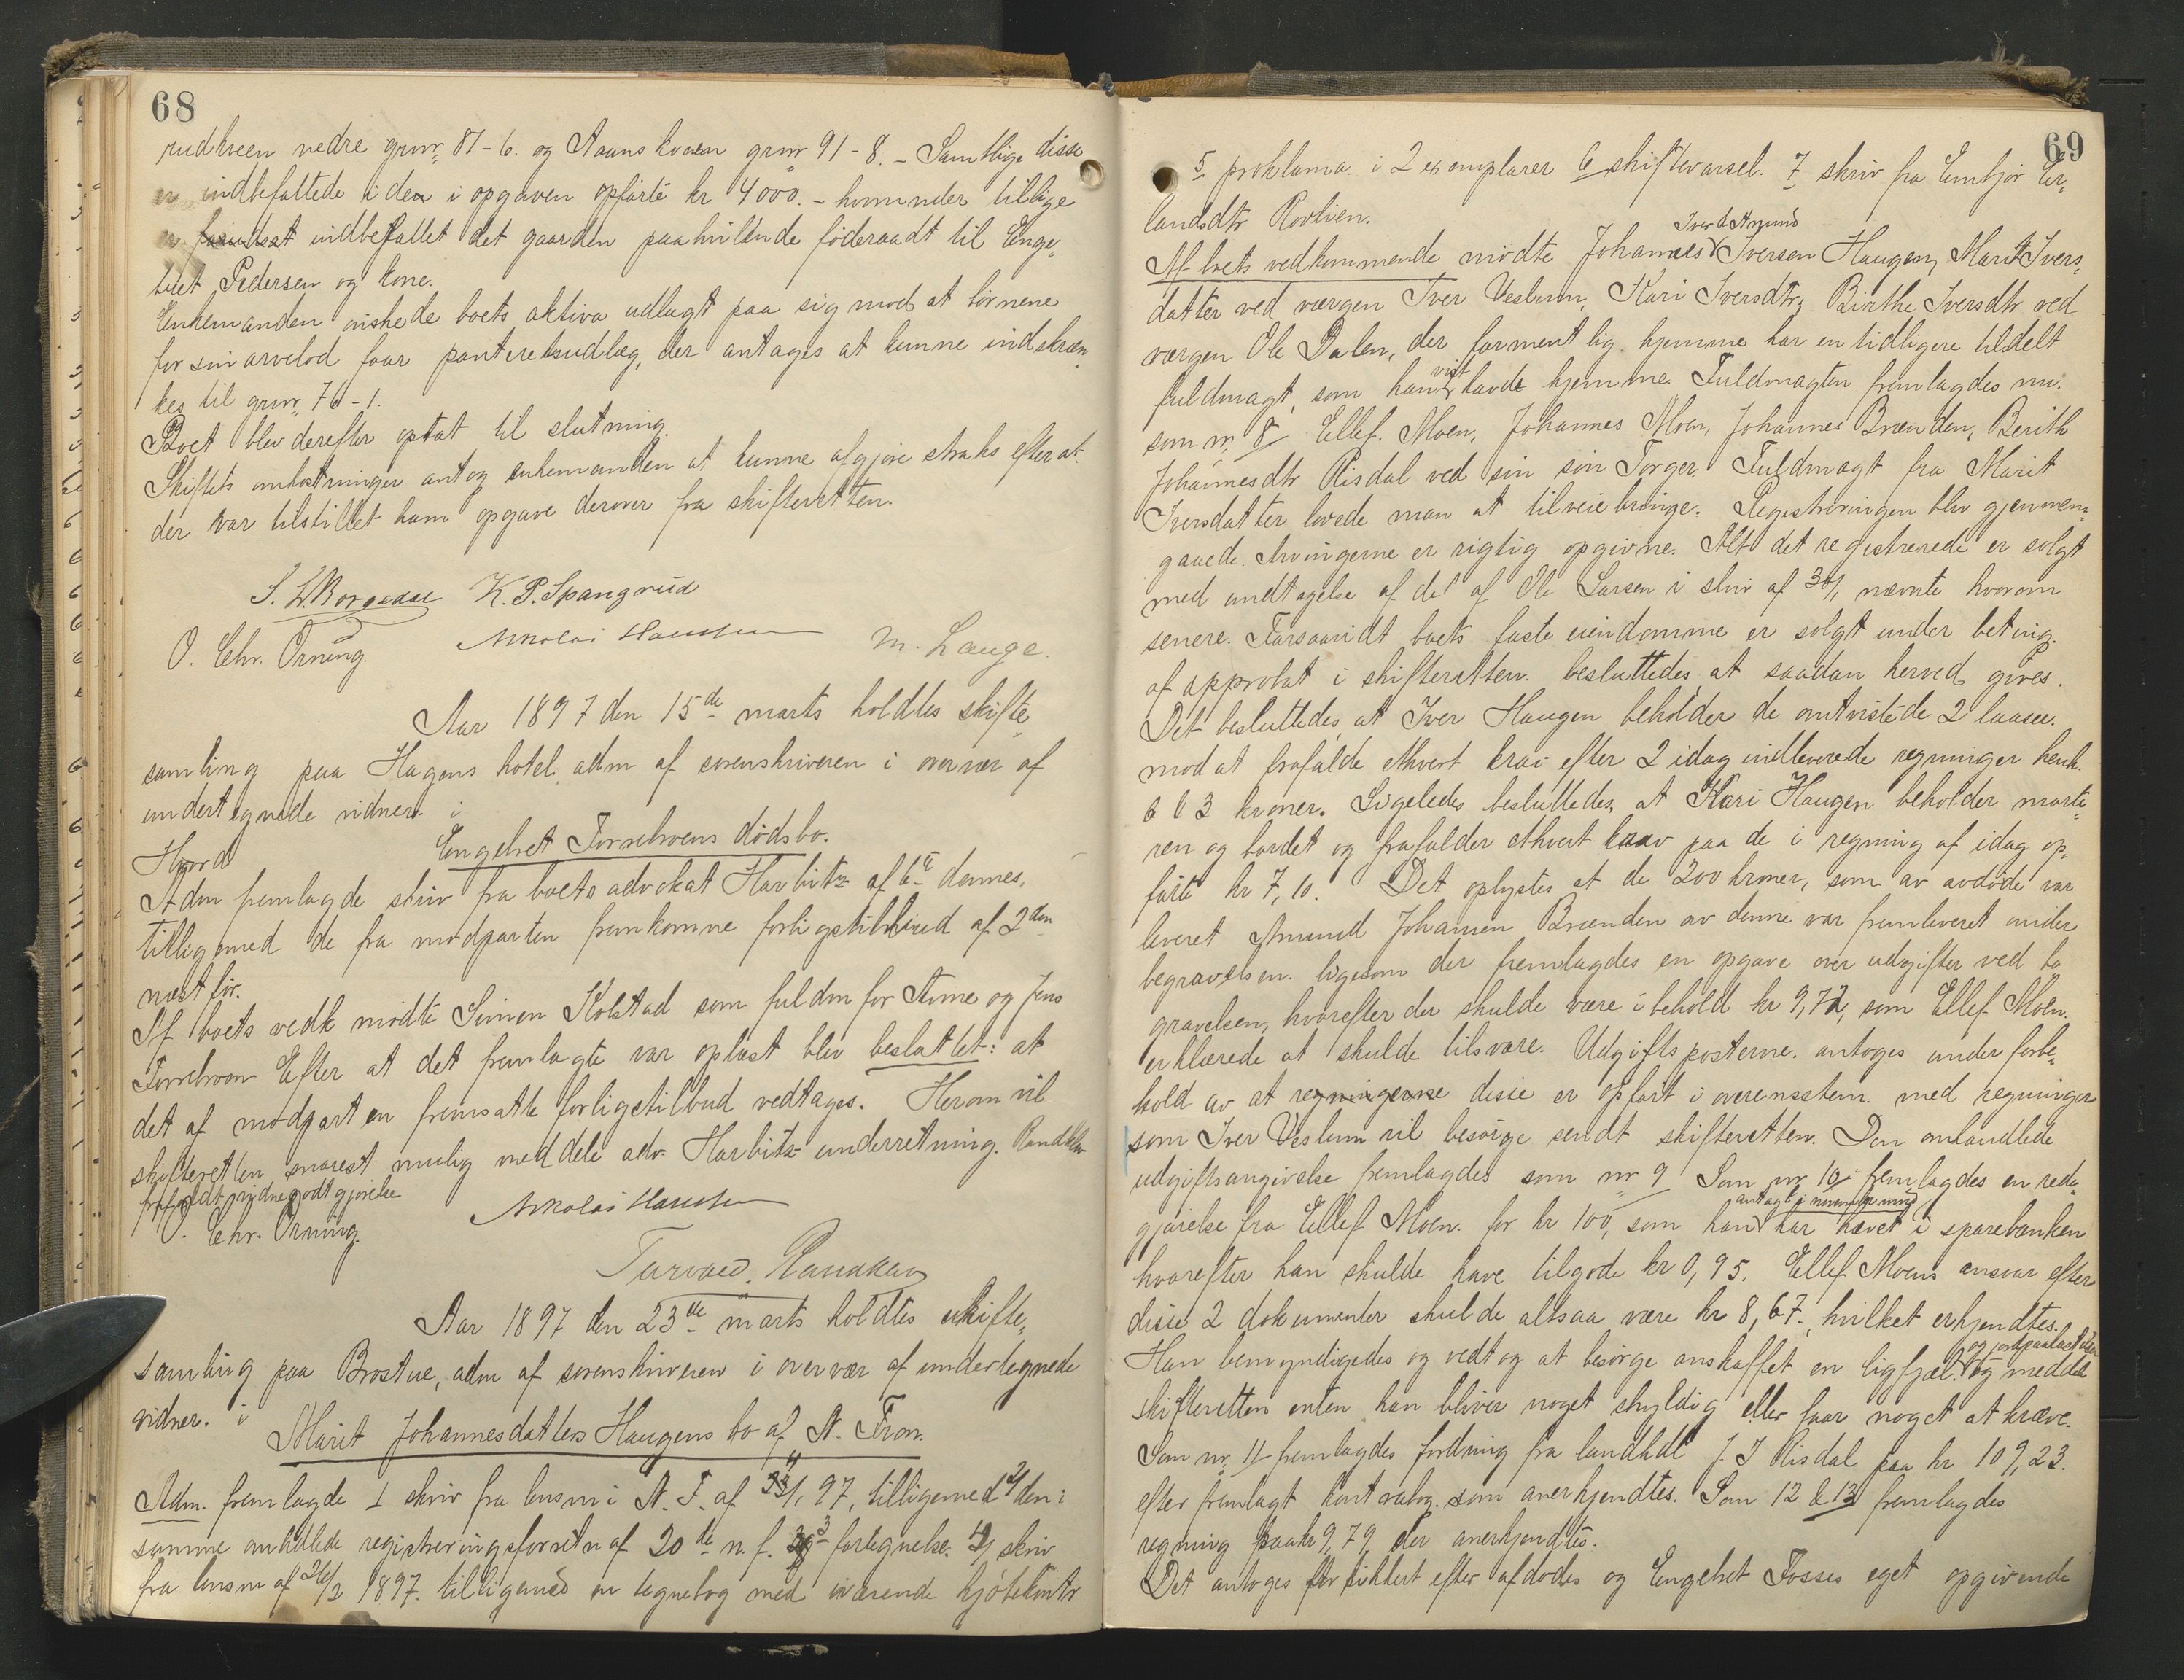 68
rudkveen nedre grnr. 81-6. og Aaanskvæen grnr 91-8. - Samtlige disse
er indbefattede i den i opgaven opførte kr 4000. - hvorunder tillige
er indbefattet det gaarden paahvilende føderaadt til Enge,
bret Pedersen og kone.
Enkemanden ønskede boets aktiva udlagt paa sig mod at børnene
for sin arvelod faar panteretsudlæg, der antages at kunne indskræn,
kes til grnr. 76-1.
Boet blev derefter optat til slutning.
Skiftets omkostninger antog enkemanden at kunne afgjøre straks efter at
der var tilstillet ham opgave derover fra skifteretten.
K. P. Spangrud
O. Chr. Örning. Nikolai Hansen M. Lange.
Aar 1897 den 15de marts holdtes skifte,
samling paa Hagens hotel, adm af sorenskriveren i overvær af
undertegnede vidner. i
Hvord Engebret Tornehvens dødsbo.
Adm fremlagde skriv fra boets advokat Harbitz af 6te dennes,
tilligemed de fra modparten fremkomne forligstilbud af 2den
næst før.
Af boets vedk mødte Simen Kolstad som fuldm for Anne og Jens
Efter at det fremlagte var oplæst blev besluttet: at
det af modparten fremsatte forligstilbud vedtages. Herom vil
skifteretten snarest mulig meddele adv. Harbitz underretning.
frafaldt vidnegodtgjørelse
O. Chr. Örning. Nikolai Hansen
Aar 1897 den 23de marts holdtes skifte,
samling paa Brostue, adm af sorenskriveren i overvær af undertegnede
vidner. i
Marit Johannesdatters Haugens bo af N. Fron.
Adm. fremlagde 1 skriv fra lensm i N. F. af 97, tilligemed 2/ den i
samme omhdlede registreringsforretn af 20de n. f. 3 fortegnelse. 4/ skriv
fra lensm af 26/2 1897. tilligemed en tegnebog med iværende kjøbekontr
69
5 proklama i 2 exemplarer 6 skiftevarsel. 7 skriv fra Embjør Er,
landsdtr Rovlien.
Iver & Amund
Af boets vedkommende mødte Johannes Iversen Haugen, Marit Ivers,
datter ved værgen Iver Veslum, Kari Iversdtr, Birthe Iversdtr ved
værgen Ole Dalen, der formentlig hjemme har en tidligere tildelt
fuldmagt, som han vist havde hjemme. Fuldmagten fremlagdes nu.
som nr 8/ Ellef Moen, Johannes Moen, Johannes Brænden, Berith
Johannesdtr Risdal ved sin søn Torger. Fuldmagt fra Marit
Iversdatter lovede man at tilveiebringe. Registreringen blev gjennem,
gaaed. Arvingerne er rigtig opgivne. Alt det registrerede er solgt
med undtagelse af det af Ole Larsen i skriv af nævnte hvorom
senere. Forsaavidt boets faste eiendomme er solgt under beting.
af approbat i skifteretten. besluttedes at saadan herved gives.
Det besluttedes, at Iver Haugen beholder de omtvistede 2 laase.
mod at frafalde ethvert krav efter 2 idag indleverede regninger henh.
6 & 3 kroner. Ligeledes besluttedes, at Kari Haugen beholder morte,
ren og bordet og frafalder ethvert krav paa de i regning af idag op,
førte kr 7,10. Det oplystes at de 200 kroner, som av avdøde var
leveret Amund Johansen Brænden av denne var fremleveret under
begravelsen. ligesom der fremlagdes en opgave over udgifter ved be
gravelsen, hvorefter der skulde være i behold kr 9,72, som Ellef Moen
erklærede at skulde tilsvare. Udgiftsposterne antoges under forbe,
hold av at regningerne disse er opført i overensstem. med regninger
som Iver Veslum vil besørge sendt skifteretten. Den omhandlede
udgiftsangivelse fremlagdes som nr 9/ Som nr 10/ fremlagdes en rede,
gjørelse fra Ellef Moen. for kr 100, som han antagl i har hævet i sparebanken
hvorefter han skulde have tilgode kr 0,95. Ellef Moens ansvar efter
disse 2 dokumenter skulde altsaa være kr 8,67., hvilket erkjendtes.
Han bemyndigedes og vedtog at besørge anskaffet en ligfjæl og meddele
skifteretten enten han bliver noget skyldig eller faar noget at kræve.
Som nr. 11/ fremlagdes fordring fra landhdl J. J Risdal paa kr 109,23.
efter fremlagt kontrabog. som anerkjendtes. Som 12 & 13 fremlagdes
regning paa kr 9,79, der anerkjendtes.
Det antoges for sikkert efter afdødes og Engebret Fosses eget opgivende